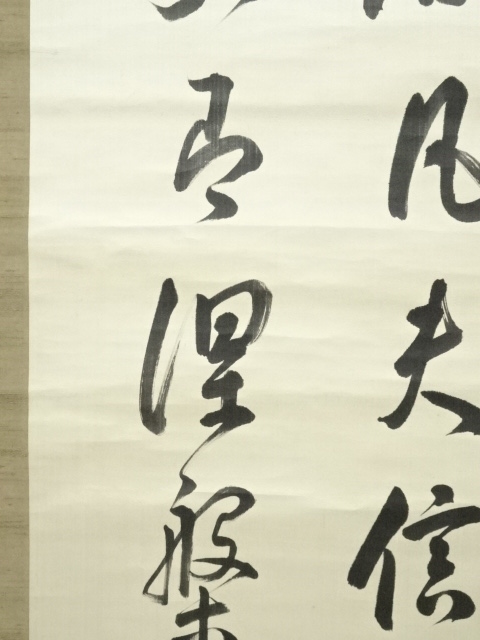 凡夫信
即涅槃